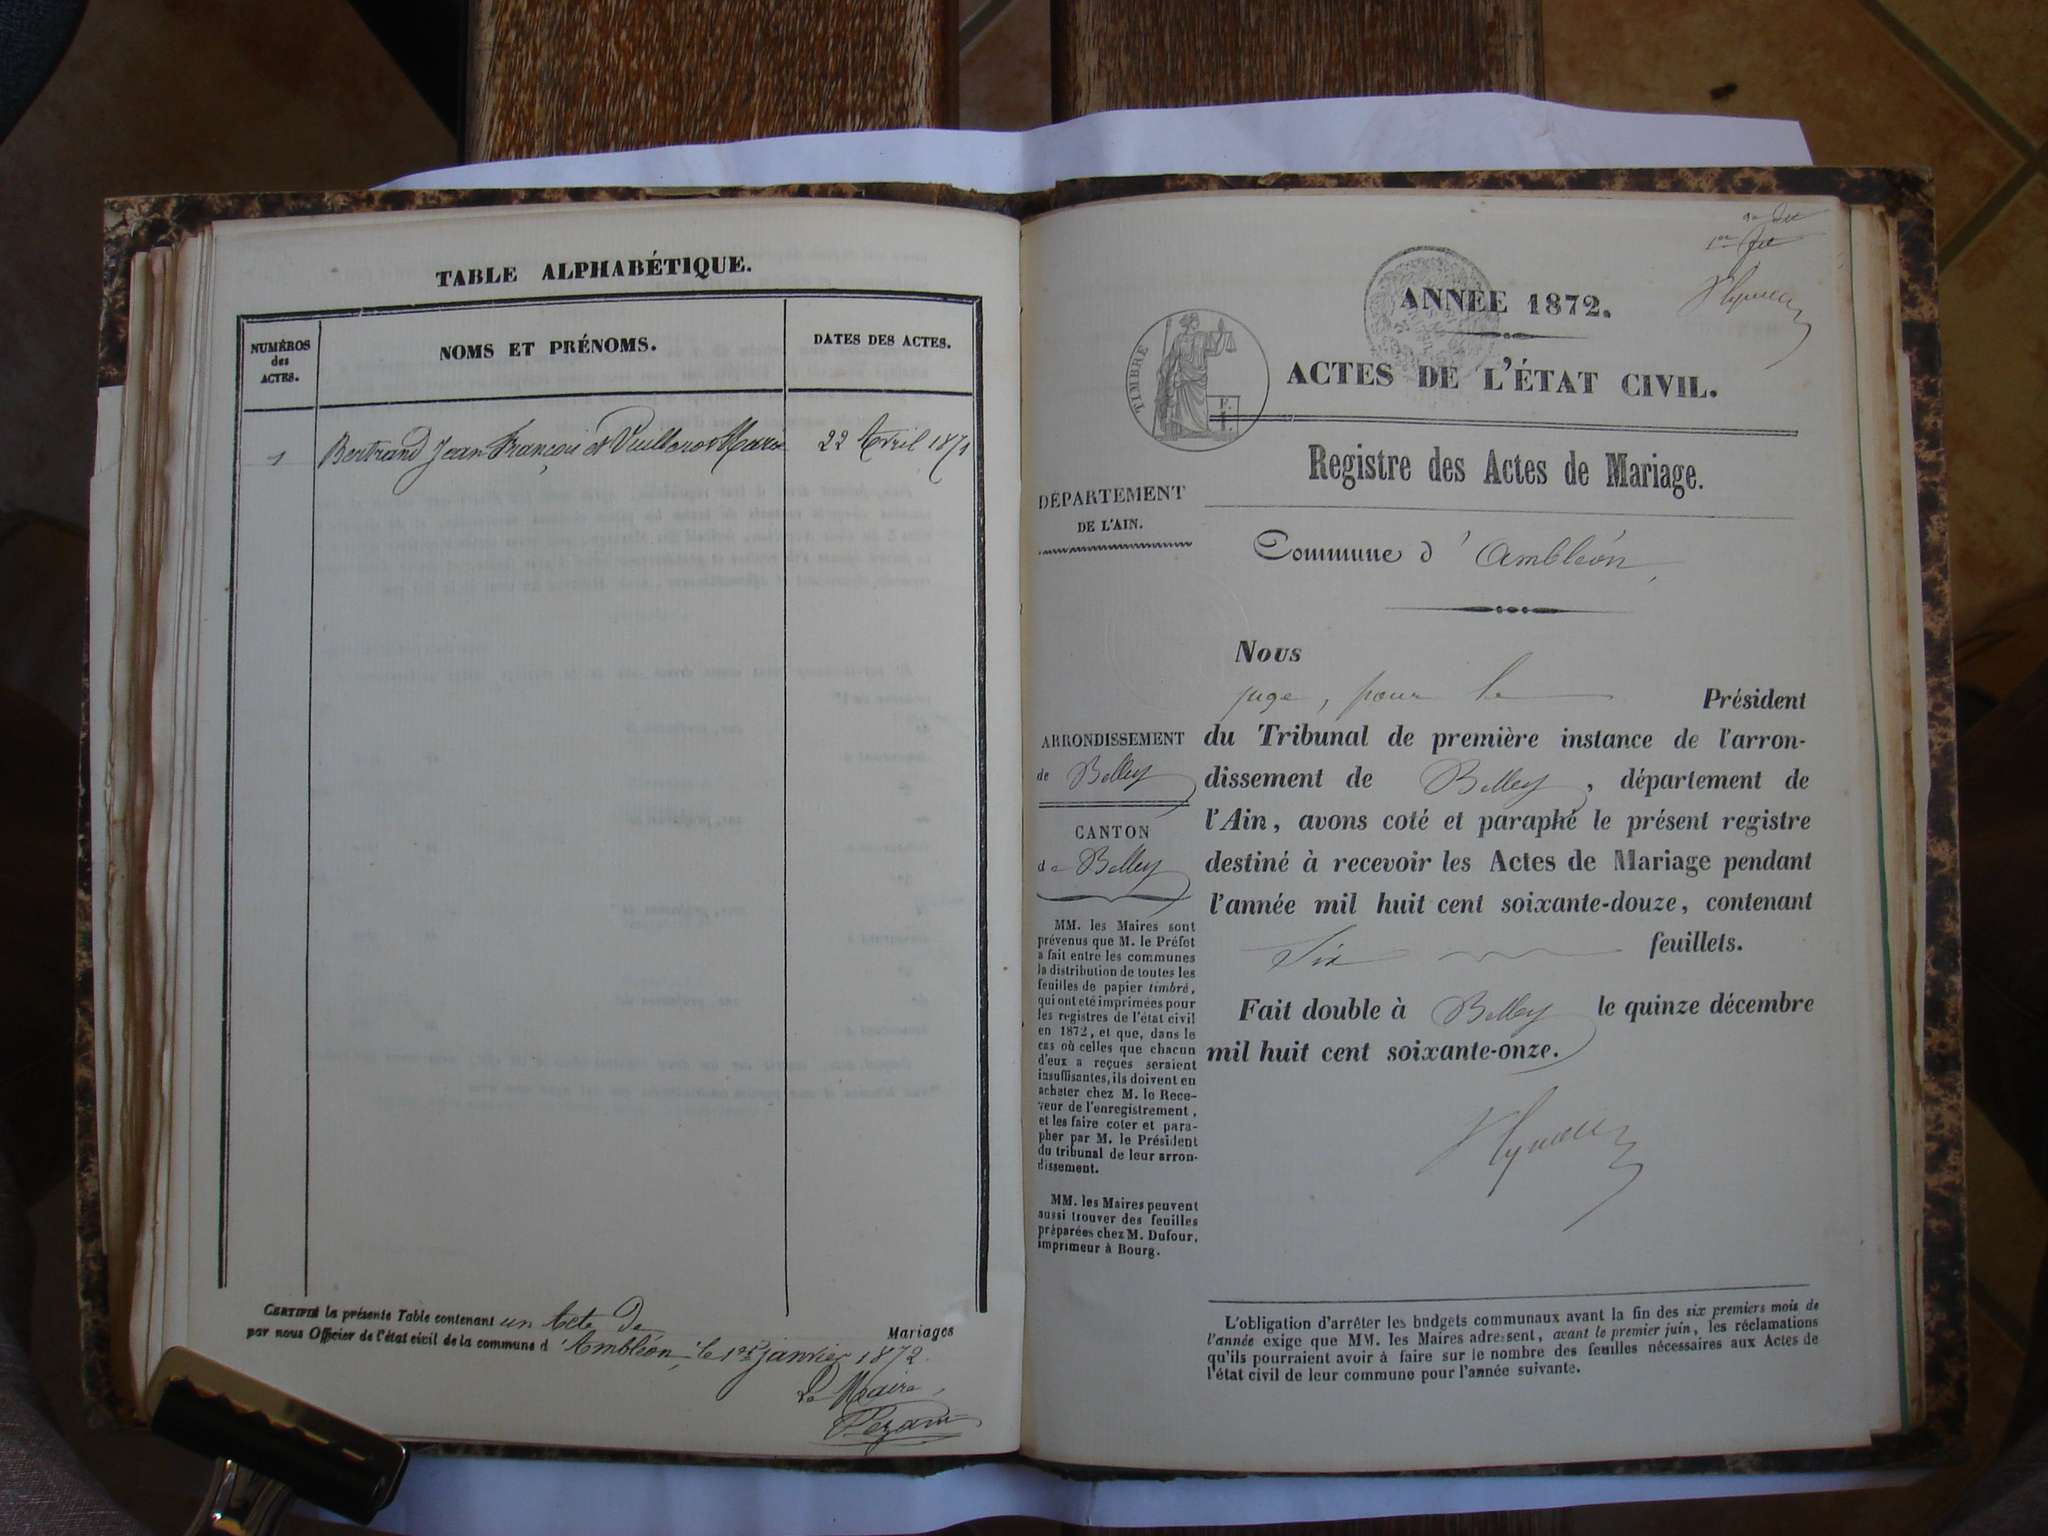 TABLE ALPHABÉTIQUE.
NUMÉROS
des
ACTES.
NOMS ET PRÉNOMS.
DATES DES ACTES.
1 Bertrand Jean François et Vuillerot Marie 22 Avril 1871
CERTIFIÉ la présente Table contenant un Acte de
Mariages
par nous Officier de l'état civil de la commune d'Ambléon, le 1er janvier 1872.
Le Maire,
ANNÉE 1872.
TIMBRE
F.
1.
ACTES DE L'ÉTAT CIVIL.
Registre des Actes de Mariage.
DÉPARTEMENT
DE L'AIN.
Commune d'Ambléon,
Nous
juge, pour le Président
du Tribunal de première instance de l'arron-
dissement de Belley, département de
l'Ain, avons coté et paraphé le présent registre
destiné à recevoir les Actes de Mariage pendant
l'année mil huit cent soixante-douze, contenant
Six feuillets.
Fait double à Belley le quinze décembre
mil huit cent soixante-onze.
ARRONDISSEMENT
de Belley
CANTON
de Belley
MM. les Maires sont
prévenus que M. le Préfet
a fait entre les communes
la distribution de toutes les
feuilles de papier timbré,
qui ont été imprimées pour
les registres de l'état civil
en 1872, et que, dans le
cas où celles que chacun
d'eux a reçues seraient
insuffisantes, ils doivent en
acheter chez M. le Rece-
veur de l'enregistrement,
et les faire coter et para-
pher par M. le Président
du tribunal de leur arron-
dissement.
MM. les Maires peuvent
aussi trouver des feuilles
préparées chez M. Dufour,
imprimeur à Bourg.
L'obligation d'arrêter les budgets communaux avant la fin des six premiers mois de
l'année exige que MM. les Maires adressent, avant le premier juin, les réclamations
qu'ils pourraient avoir à faire sur le nombre des feuilles nécessaires aux Actes de
l'état civil de leur commune pour l'année suivante.